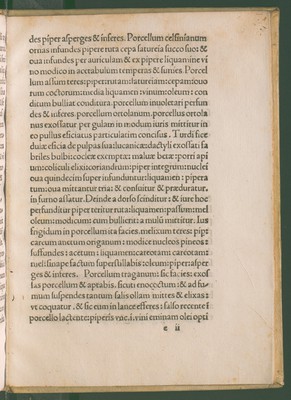 des piper asperges & inferes. Porcellum celsinianum
ornas infundes pipere ruta cepa satureia succo suo: &
oua infundes per auriculam & ex pipere liquamine vi
no modico in acetabulum temperas & sumes. Porcel
lum assum teres: piper: rutam: satureiam: cepam: ouo
rum coctorum: media liquamen: vinum: oleum: con
ditum bulliat conditura. porcellum in uoletari perfun
des & inferes. porcellum ortolanum. porcellus ortola
nus exossatur per gulam in modum iuris mittitur in
eo pullus esiciatus particulatim concisus. Turdi fice
dulæ esicia de pulpa sua: lucanicæ: dactyli exossati fa
briles bulbi: cocleæ exemptæ: maluæ betæ: porri api
um: coliculi elixi: coriandrum: piper integrum: nuclei
oua quindecim super infunduntur: liquamen: pipera
tum: oua mittantur tria: & consuitur & præduratur.
in furno assatur. Deinde a dorso scinditur: & iure hoc
perfunditur piper teritur ruta: liquamen: passum: mel
oleum: modicum: cum bullierit: amulū mittitur. Ius
frigidum in porcellum ita facies. melixum teres: pip:
careum anetum origanum: modice nucleos pineos:
suffundes: acetum: liquamen: careotam: careotam:
mel: sinape factum superstillabis: oleum: piper: asper
ges & inferes. Porcellum traganum: sic facies: exos
sas porcellum & aptabis. sicuti enococtum: & ad fu⸗
mum suspendes tantum salis ollam mittes & elixas:
vt coquatur. & sic eum in lance efferes: salso recente
porcello lactente: piperis vnc. i. vini eminam olei opti
e ii